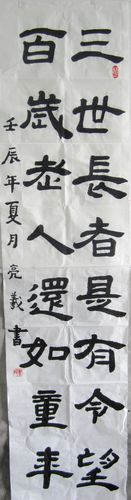 三世長者是有令望
百歲老人還如童年
壬辰年夏月亮義書